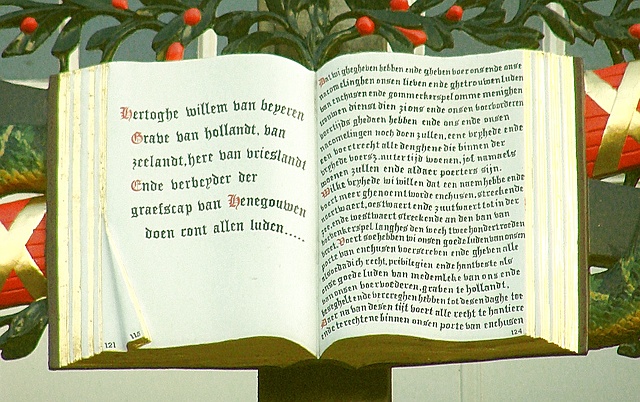 Hertoghe willem van beyeren
Grave van hollandt, van
zeelandt, here van vrieslandt
Ende verbeyder der
graefscap van Henegouwen
doen cont allen luden.....
121
115
Dat wi ghegheven hebben ende gheven voer ons ende onse
nacomelinghen onsen lieven ende ghetrouwen luden
van enchusen ende gommerkerspel omme menighen
trouwen dienst dien zi ons ende onsen voervorderen
voertijds ghedaen hebben ende ons ende onsen
nacomelingen noch doen zullen, eene vryhede ende
een voertrecht alle denghene die binnen der
vryhede voersz. nutertijd woenen, jof namaels
woenen zullen ende aldaer poerters sijn.
Wilke vryhede wi willen dat een naem hebbe ende
voert meer ghenoemt worde enchusen, streckende
noertwaert, oestwaert ende zuutwaert tot in der
zee, ende westwaert streckende an den ban van
kerspel langhes den wech twe hondert roeden
Voert soe hebben wi onsen goede luden van onsen
porte van enchusen voerscreven ende gheven alle
alsoedadich recht, previlegien ende hantveste als
onse goede luden van medemleke van ons ende
van onsen voervoerderen, graven te hollandt,
beseghelt ende vercreghen hebben tot desen daghe toe
Daer na van desen tijt voert alle recht te hantiere
ende te rechtene binnen onsen porte van enchusen
124